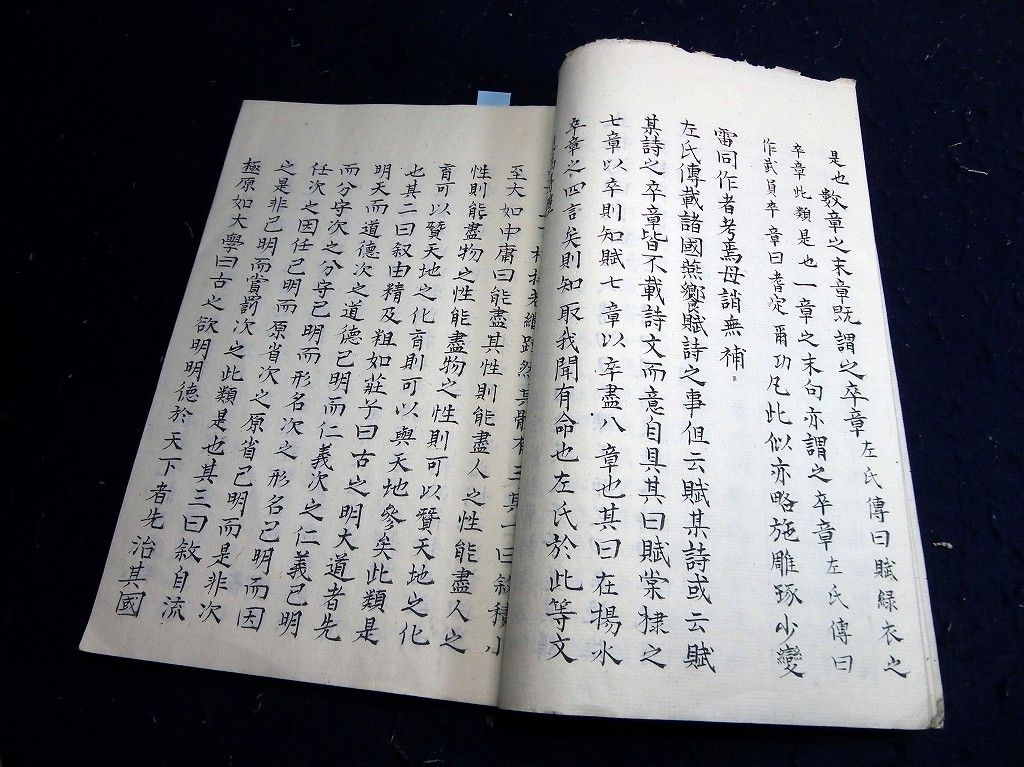 是也數章之末章既謂之卒章左氏傳曰賦綠衣之
卒章此類是也一章之末句亦謂之卒章左氏傳曰
作武員卒章曰耆定爾功凡此似亦略施雕琢少變
雷同作者考焉毋誚無補
左氏傳載諸國燕饗賦詩之事但云賦某詩或云賦
某詩之卒章皆不載詩文而意自具其曰賦棠棣之
七章以卒則知賦七章以卒盡八章也其曰在揚水
卒章之四言矣則知取我聞有命也左氏於此等文
然其體有三其一曰敘積小
至大如中庸曰能盡其性則能盡人之性能盡人之
性則能盡物之性能盡物之性則可以贊天地之化
育可以贊天地之化育則可以與天地參矣此類是
也其二曰叙由精及粗如莊子曰古之明大道者先
明天而道德次之道德已明而仁義次之仁義已明
而分守次之分守已明而形名次之形名已明而因
任次之因任已明而原省次之原省已明而是非次
之是非已明而賞罰次之此類是也其三曰敘自流
極原如大學曰古之欲明明德於天下者先治其國